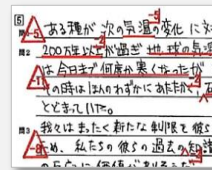 5
問1 ある種が次の気温の変化に対
-5
問2 200万年以上が過ぎ地球の気温
は今日まで何度か寒くなったが
-1
の時はほんのわずかにあたたか
とどまっていた。
問3 我々はまったく新たな制限を彼ら
ため、私たちの彼らの過去の知識
-8
の反応に価値が